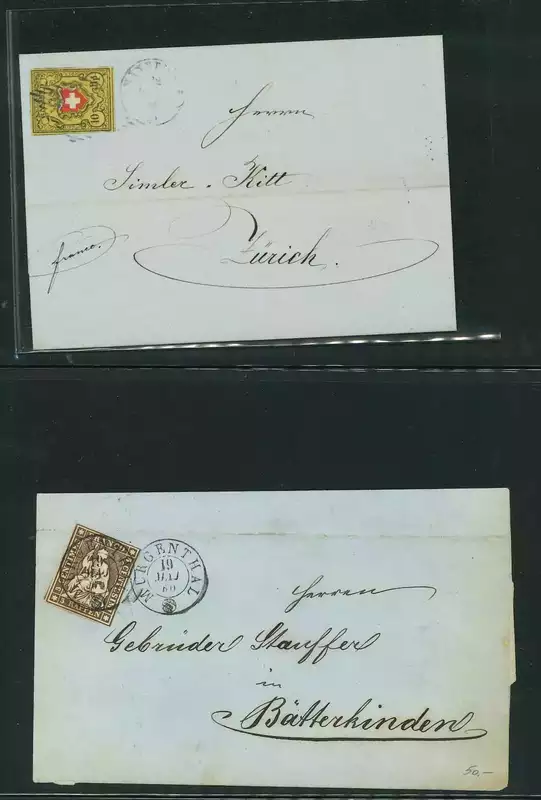 10
Herren
Simler - Kitt
Zürich.
franco.
MURGENTHAL
19
MAI
60
Herren
Gebrüder Stauffer
in
Bätterkinden
50.–